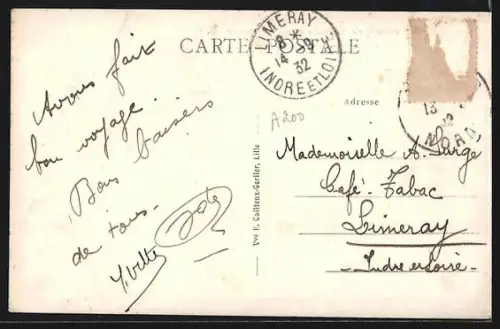 CARTE POSTALE
LIMERAY
8 * 
14 - 9
32
INDRE ET LOIRE
13
NORD
Adresse
A200
Avons fait
bon voyage.
Bons baisers
de tous.
Yvette
Mademoiselle A.
Café-Tabac
Limeray
- Indre et Loire -
Vve E. Cailteux-Gorlier, Lille